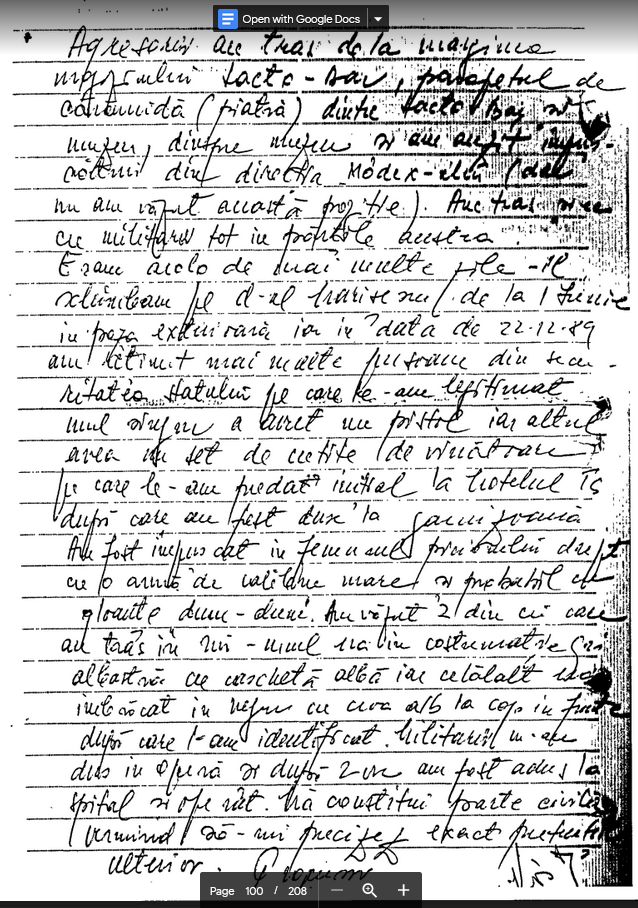 Open with Google Docs
Agresorii au tras de la marginea
magazinului Lacto-Bar, parapetul de
cărămidă (piatră) dintre Lacto Bar și
muzeu, dinspre muzeu și am auzit împuș-
cături din direcția Modex-ului (dar
nu am văzut această poziție). Au tras și
cu militarii tot în părțile
Eram acolo de mai multe zile - îl
schimbam pe d-ul de la 1 Iunie
în paza exterioară iar în data de 22.12.89
am legitimat mai multe persoane din secu-
ritatea statului pe care le-am legitimat
unul singur a avut un pistol iar altul
avea un set de cuțite de vînătoare
pe care le-am predat inițial la hotelul
după care au fost duse la garnizoană
Am fost împușcat în femurul piciorului drept
cu o armă de calibru mare și probabil cu
gloanțe dum-dum. Am văzut 2 din cei care
au tras în noi - unul era în costumație gri
albastră cu caschetă albă iar celălalt era
îmbrăcat în negru cu ceva alb la cap în frunte
după care l-am identificat. Militarii m-au
dus în Operă și după 2 ore am fost adus la
spital și operat. Mă constitui parte civilă
urmînd să-mi precizez exact pretenția
ulterior.
Page 100 / 208